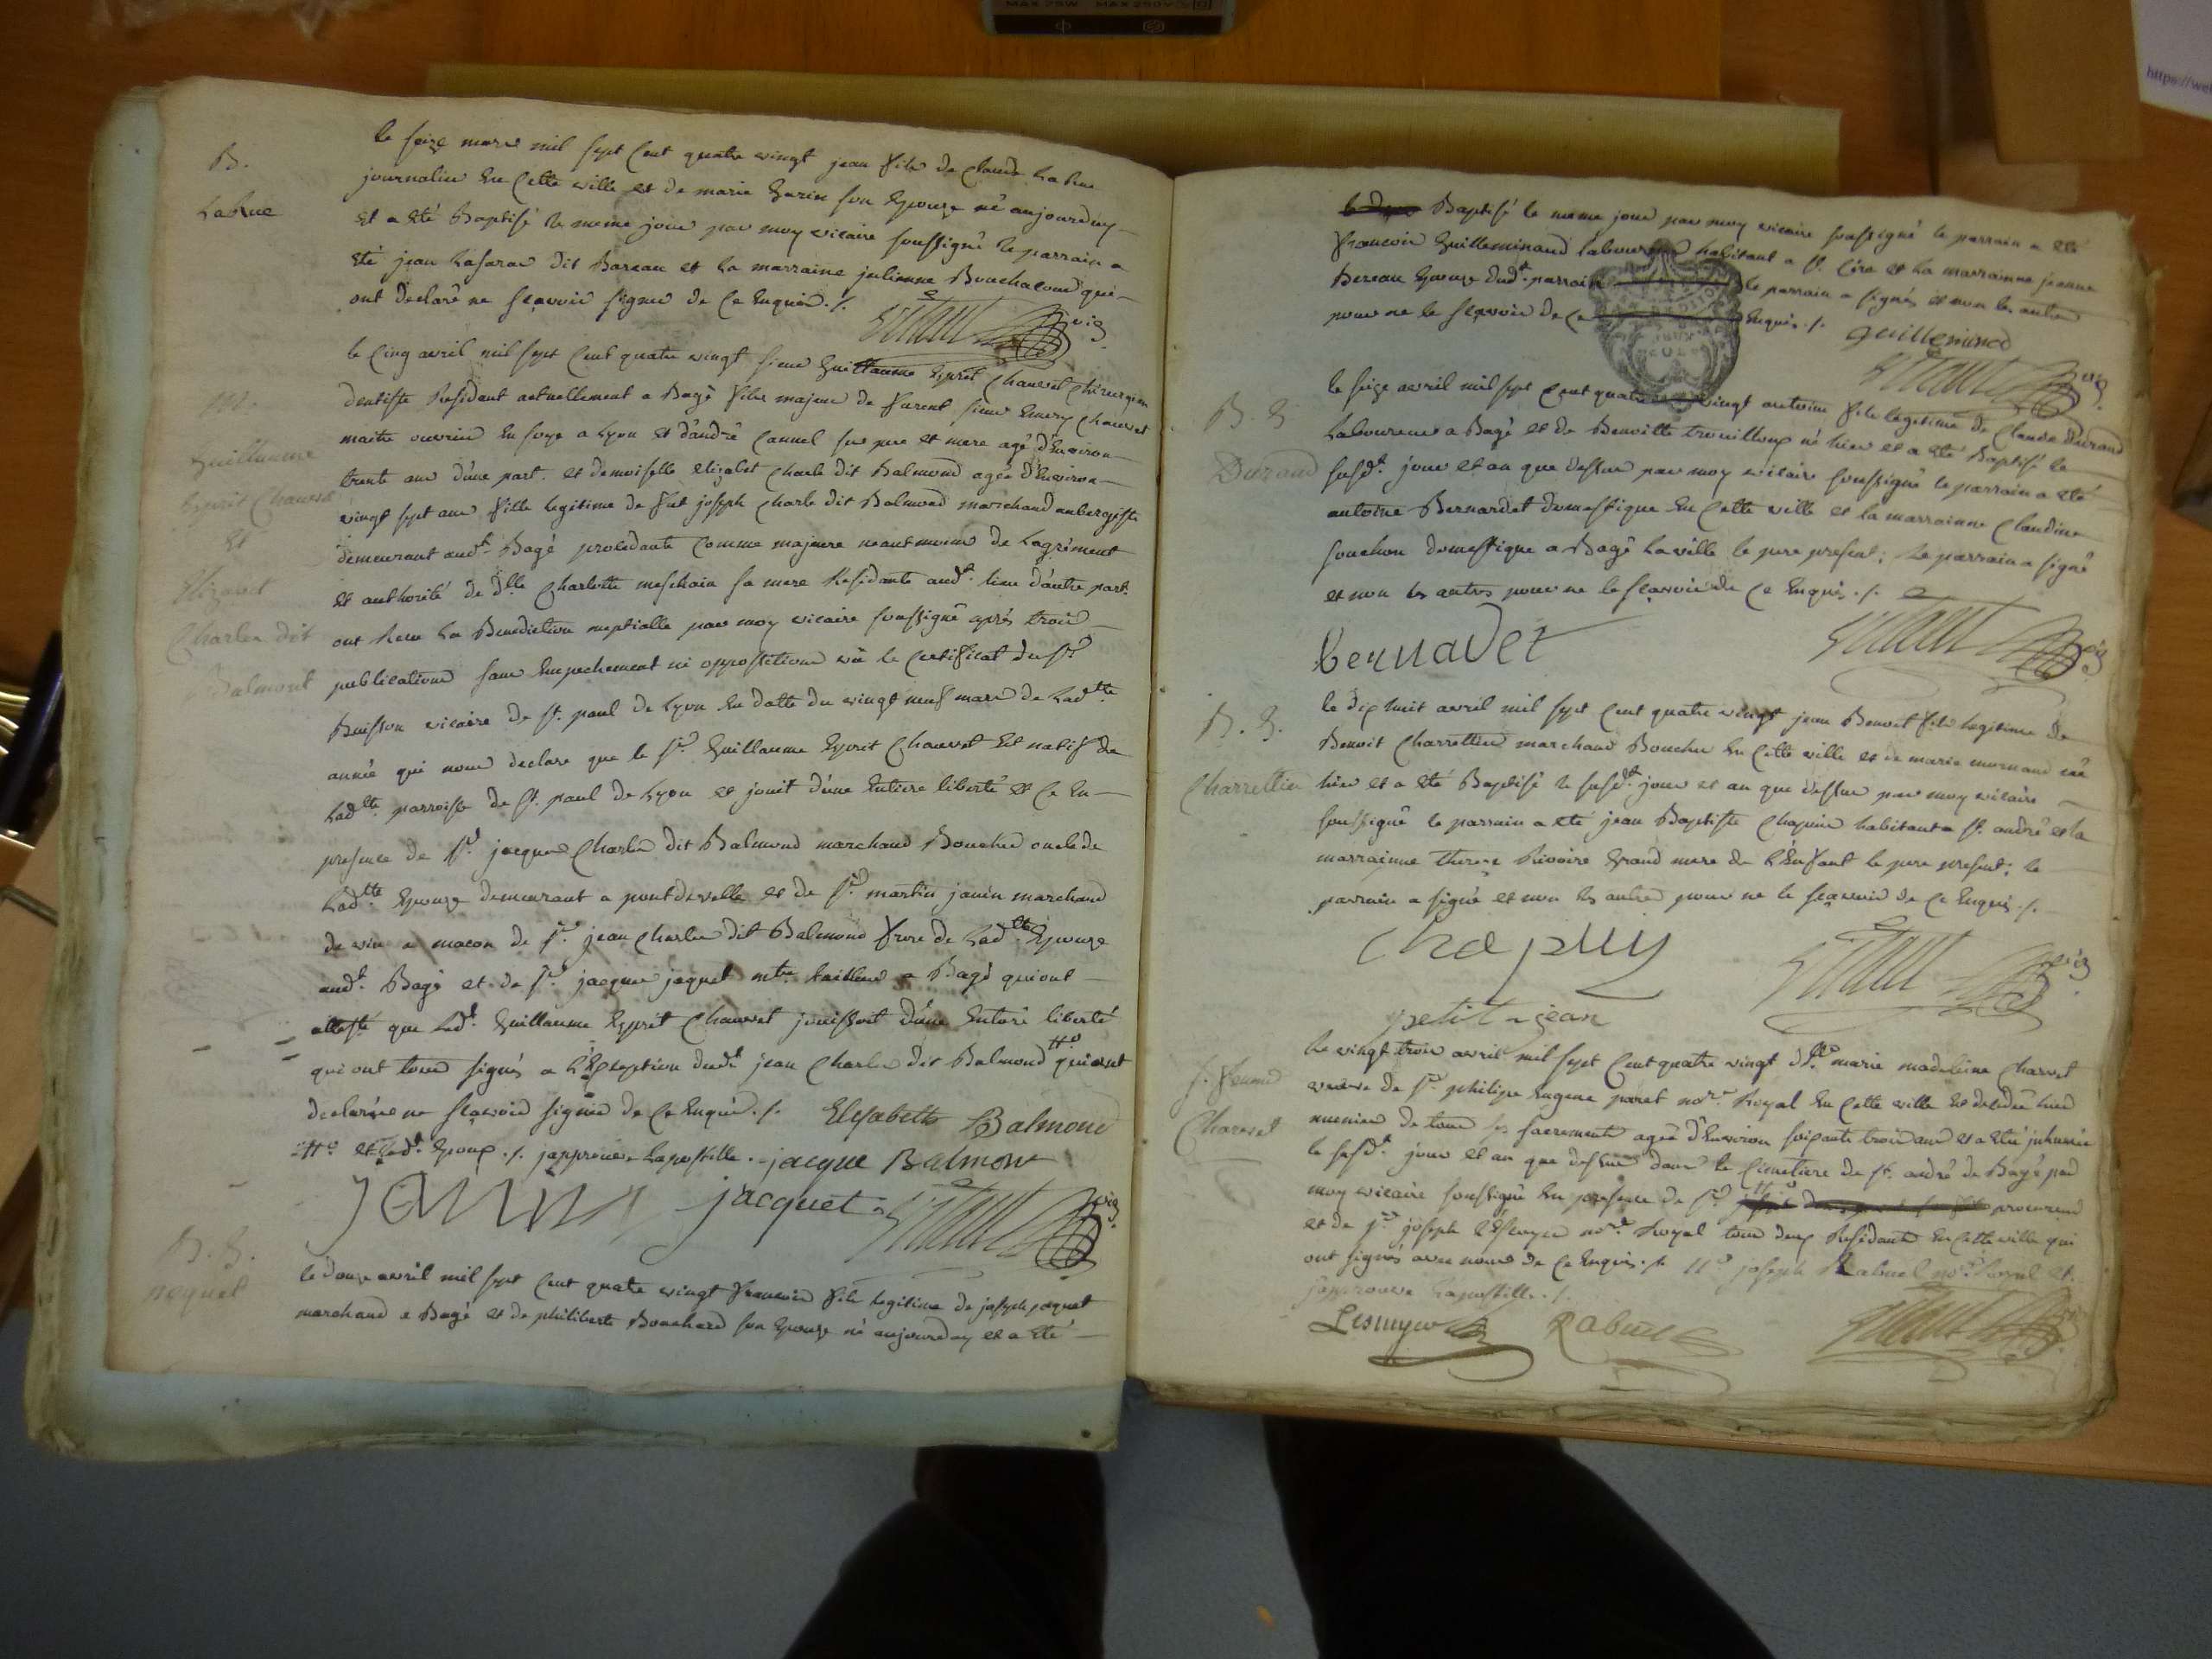 B.
LaRue
le seize mars mil sept cent quatre vingt jean fils de Claude LaRue
journalier en cette ville et de marie son Epouze né aujourd'uy
et a été Baptisé le meme jour par moy vicaire soussigné le parrain a
été jean dit Bareau et la marraine julienne Bouchacourd qui
ont declaré ne sçavoir signer de ce Enquis ./.
vic
M.
Guillaume
Esprit Chauvet
Et
Elizabet
Charles dit
Balmont
le cinq avril mil sept cent quatre vingt sieur Guillaume Esprit Chauvet Chirurgien
dentiste Residant actuellement a Bagé fils majeur de furent sieur Emery Chauvet
maitre ouvrier en soye a Lyon et d'andré Cannel ses pere et mere agé d'Environ
trente ans d'une part. et demoiselle elizabet Charle dit Balmond agée d'Environ
vingt sept ans fille legitime de fut joseph Charle dit Balmond marchand aubergiste
demeurant audt. Bagé procedante comme majeure neantmoins de Lagrément
et authorité de dlle Charlotte meschain sa mere Residante audt. lieu d'autre part.
ont Recu La Benediction nuptialle par moy vicaire soussigné aprés trois
publications sans Empechement ni oppositions vû le Certificat du Sr.
Buisson vicaire de St. paul de Lyon en datte du vingt neuf mars de Ladtte.
année qui nous declare que le Sr. Guillaume Esprit Chauvet Est natif de
Ladtte. parroisse de St. paul de Lyon et jouit d'une Entiere liberté et ce En
presence de Sr. jacques Charles dit Balmond marchand Boucher oncle de
Ladtte. Epouze demeurant a pontdevelle et de Sr. martin janin marchand
de vin a macon de Sr. jean Charles dit Balmond frere de Ladtte. Epouze
audt. Bagé et de Sr. jacque jaquet mtre. tailleur a Bagé qui ont
attesté que Ledt. Guillaume Esprit Chauvet jouissoit d'une Entiere liberté
qui ont tous signés a L'Exception dudt. jean Charles dit Balmond qui ont
declarée ne sçavoir signer de ce Enquis ./. Elisabeth Balmond
et Ledt. Epoux ./. japprouve Lapostille. jacque Balmont
janin jacquet vic
B. G.
paquet
le douze avril mil sept cent quatre vingt francois fils legitime de joseph paquet
marchand a Bagé et de philiberte Bouchard son Epouze né aujourduy et a été
Baptisé le meme jour par moy vicaire soussigné le parrain a été
francois Guilleminaud laboureur habitant a St. Cire et la marrainne jeanne
Bereau Epouze dudt. parrain le parrain a signés et non les autres
pour ne le sçavoir de ce Enquis ./. guilleminod
vic
B. G.
Durand
le seize avril mil sept cent quatre vingt antoine fils legitime de Claude Durand
Laboureur a Bagé et de Benoitte trouilloux né hier et a été Baptisé le
susdt. jour et an que dessus par moy vicaire soussigné le parrain a été
antoine Bernardet domestique En Cette ville et la marrainne Claudine
souchon domestique a Bagé La ville le pere present; le parrain a signé
et non les autres pour ne le sçavoir de ce Enquis ./.
bernadet vic
B. G.
Charrettier
le dix huit avril mil sept cent quatre vingt jean Benoit fils legitime de
Benoit Charrettier marchand Boucher En Cette ville et de marie mornand né
hier et a été Baptisé le susdt. jour et an que dessus par moy vicaire
soussigné le parrain a été jean Baptiste Chapuis habitant a St. andré et la
marrainne therese Rivoire Grand mere de L'Enfant le pere present; le
parrain a signé et non les autres pour ne le sçavoir de ce Enquis ./.
Chapuy vic
petit-jean
S. femme
Charvet
Le vingt trois avril mil sept cent quatre vingt dlle. marie madeleine Charvet
veuve de Sr. philipe Eugene paret nore. Royal En Cette ville Est decedée hier
munie de tous ses sacrements agée d'Environ soixante trois ans et a été inhumée
le susdt. jour et an que dessus dans le Cimetiere de St. andré de Bagé par
moy vicaire soussigné En presence de Sr. procureur
et de Sr. joseph nore. Royal tous deux Residants En Cette ville qui
ont signés avec nous de ce Enquis ./. joseph Rabuel nore. Royal et.
japprouve Lapostille ./.
Rabuel vic